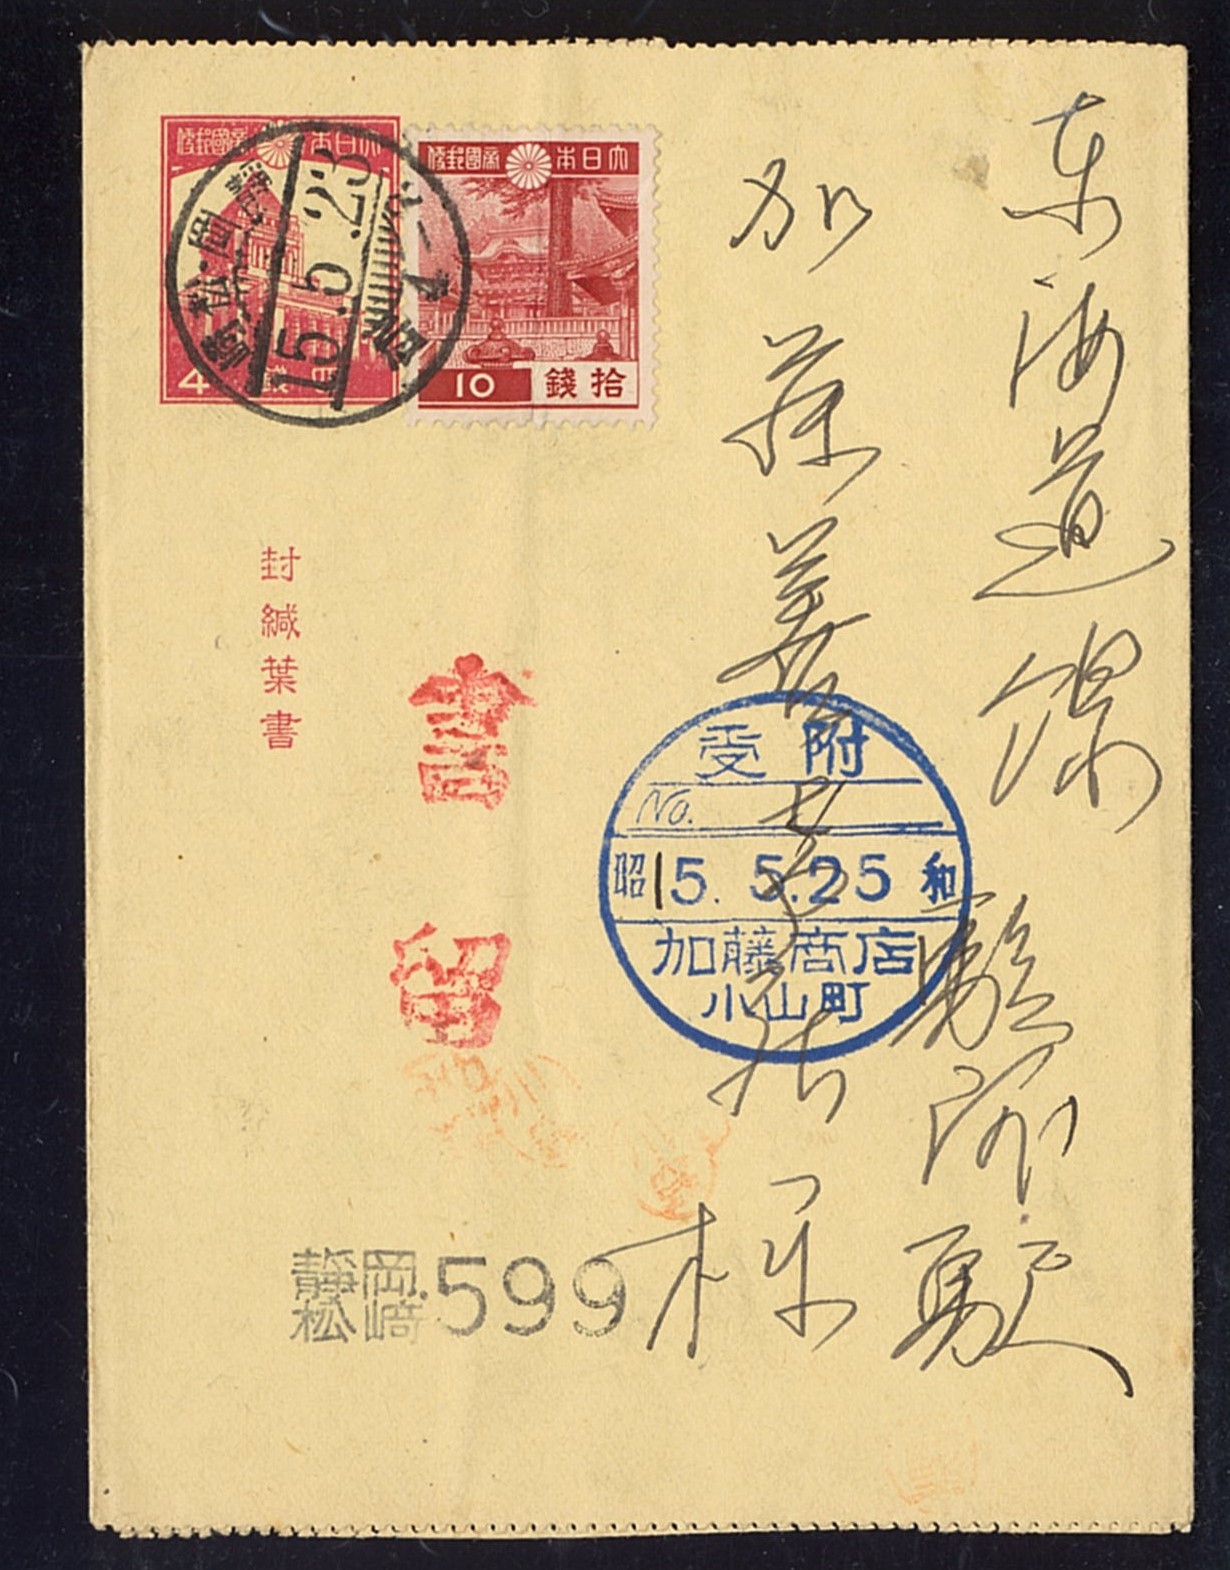 東海道線
駿河駅
加藤善
様
大日本帝國郵便
4 錢四
大日本帝國郵便
10 拾錢
静岡・松崎
15.5.23
封緘葉書
書留
受附
No.
昭和 15. 5.25
加藤商店
小山町
静岡.松崎 599